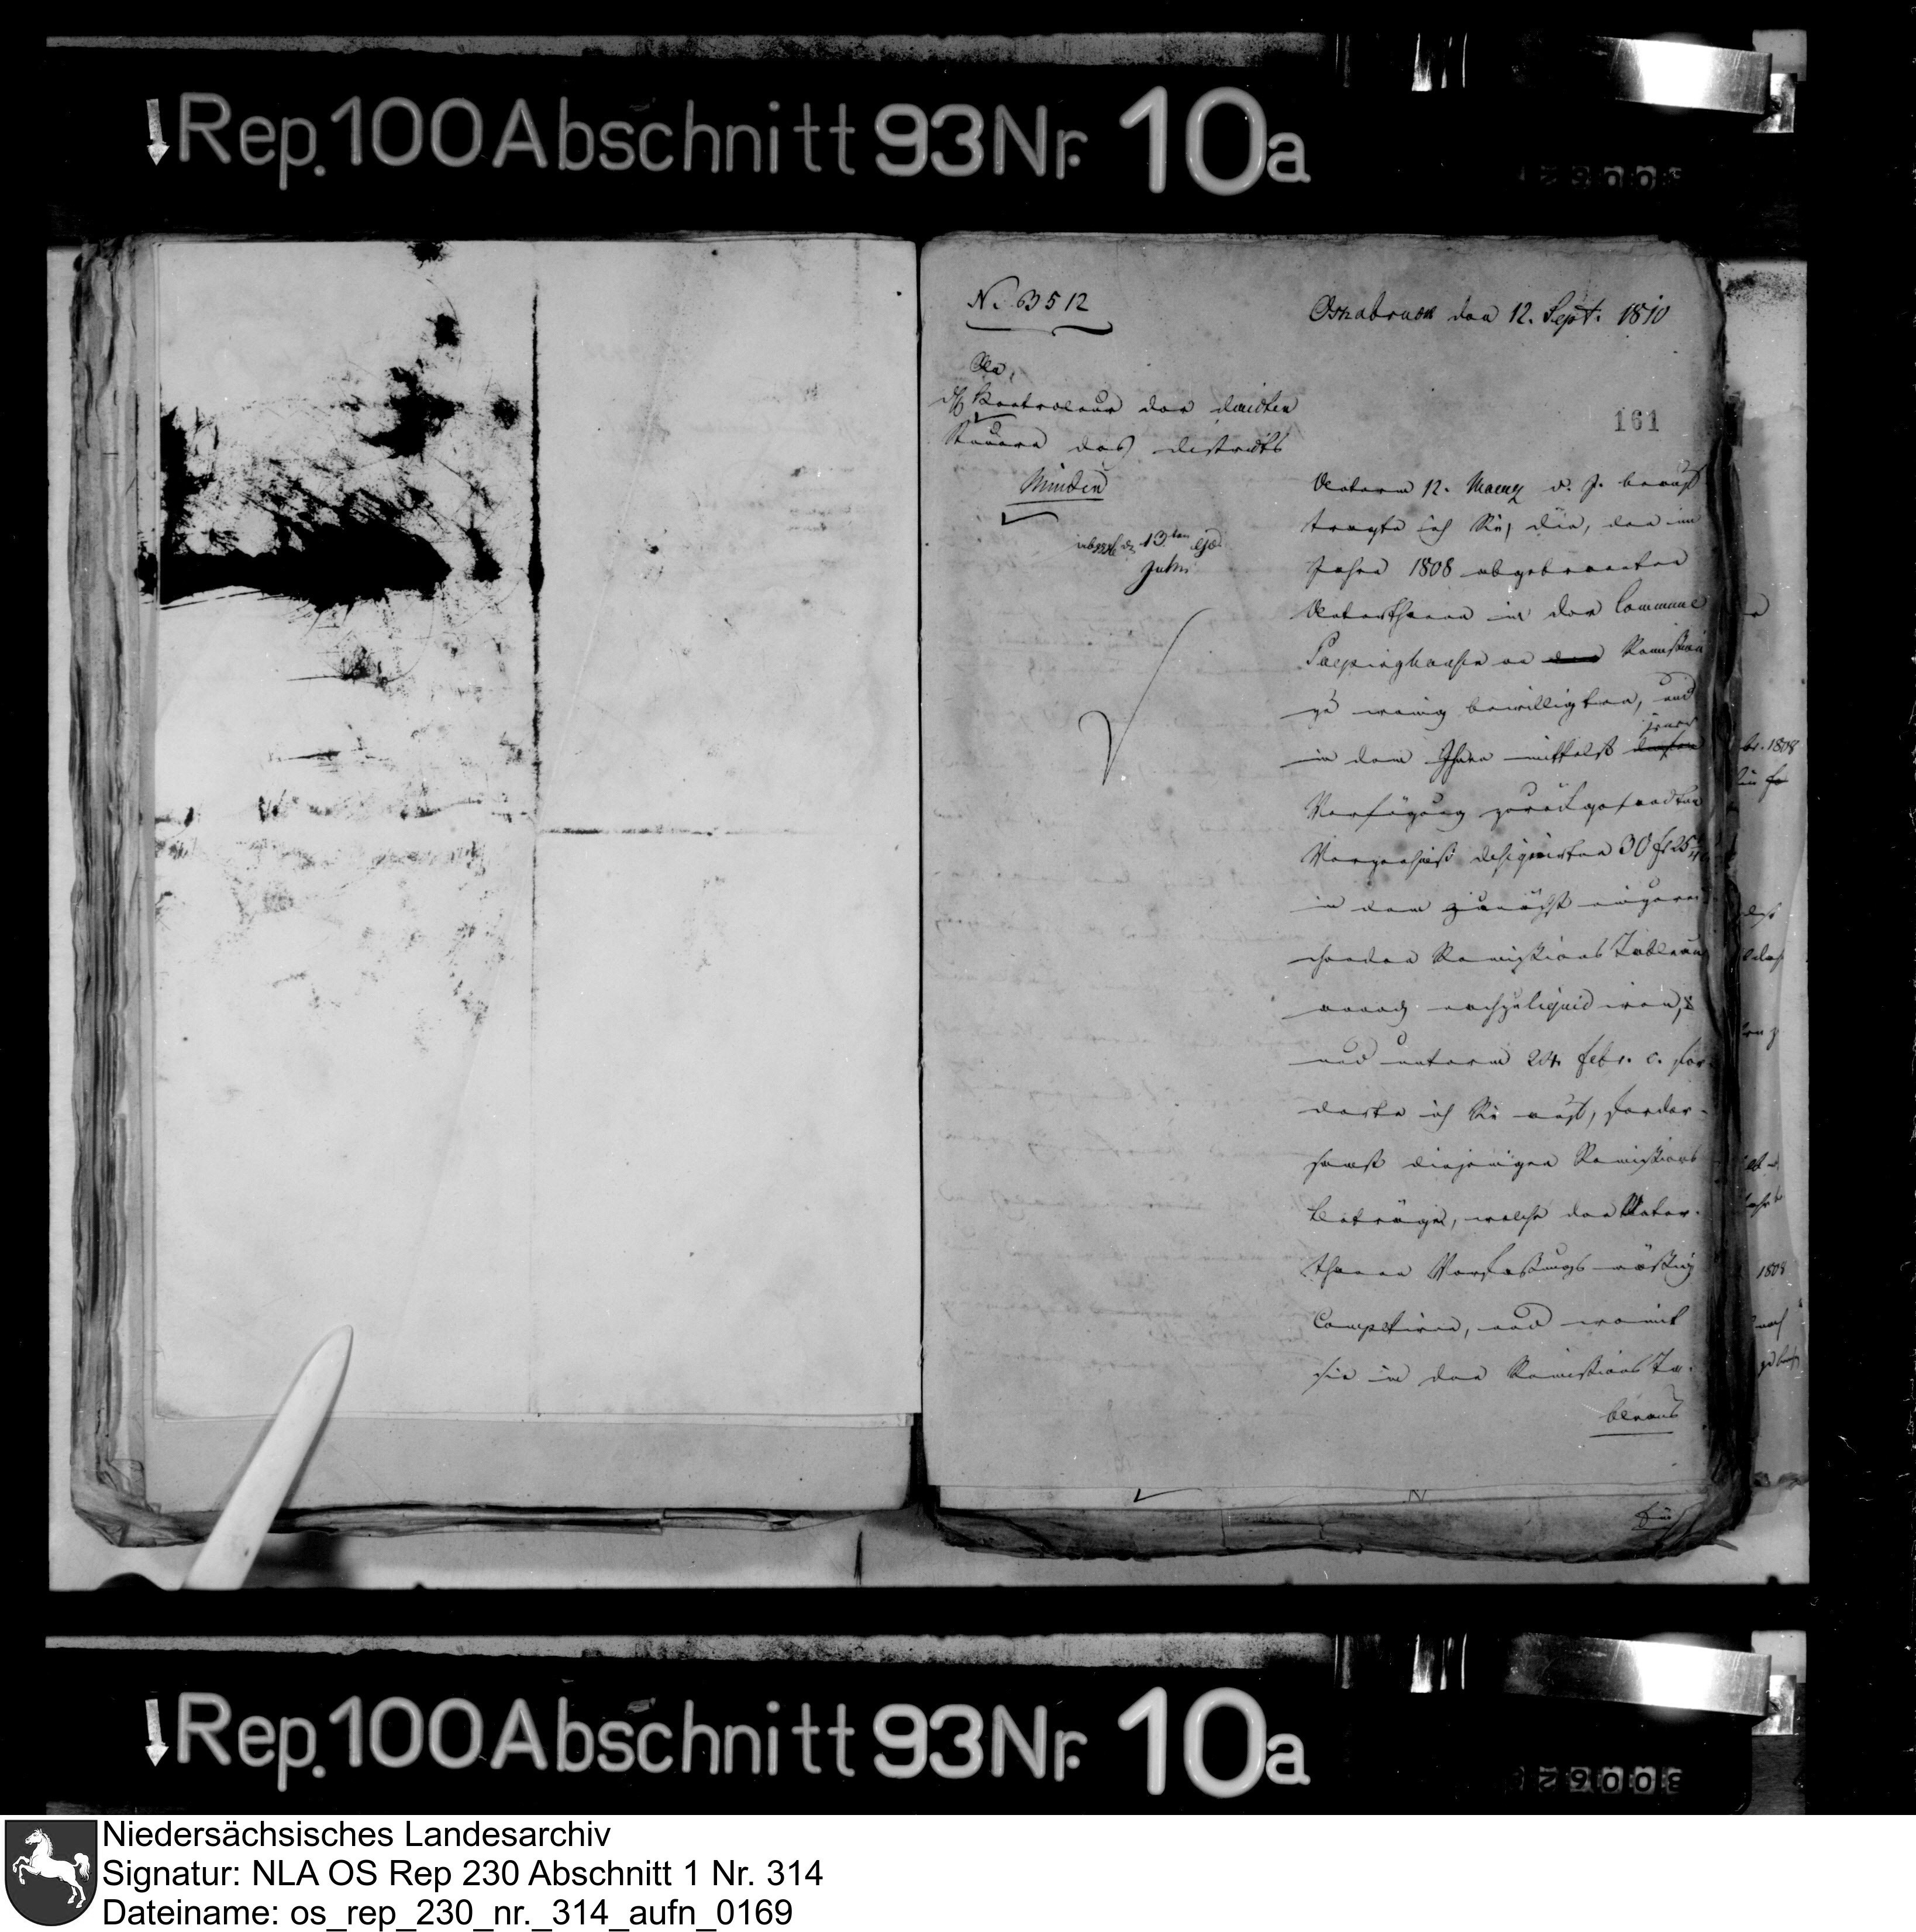 Rep. 100 Abschnitt 93 Nr. 10a
N. 3512
Osnabrueck den 12. Sept. 1810
An
d H Kontroleur der direkten
Steuern des Distrikts
Minden
161
den 13ten
Unterm 12. Maerz v. J. beauf
tragte ich Sie, die, den im
Jahre 1808 abgebrannten
Unterthanen in der Commune
an den Remission
zu wenig bewilligten, und
in dem Ihnen mittelst
Verfügung zurückgesandten
Verzeichniß designirten 30 fr 25
in dem zunächst einzurei
chenden Remissions Tableau
nachzuliquidiren,
und unterm 24. Febr. c. for
derte ich Sie auf, forder-
samst diejenigen Remissions
Beträge, welche den Unter-
thanen Verfassungsmäßig
Competiren, und womit
sie in den Remissions Ta-
bleaus
1808
1808
Rep. 100 Abschnitt 93 Nr. 10a
Niedersächsisches Landesarchiv
Signatur: NLA OS Rep 230 Abschnitt 1 Nr. 314
Dateiname: os_rep_230_nr._314_aufn_0169